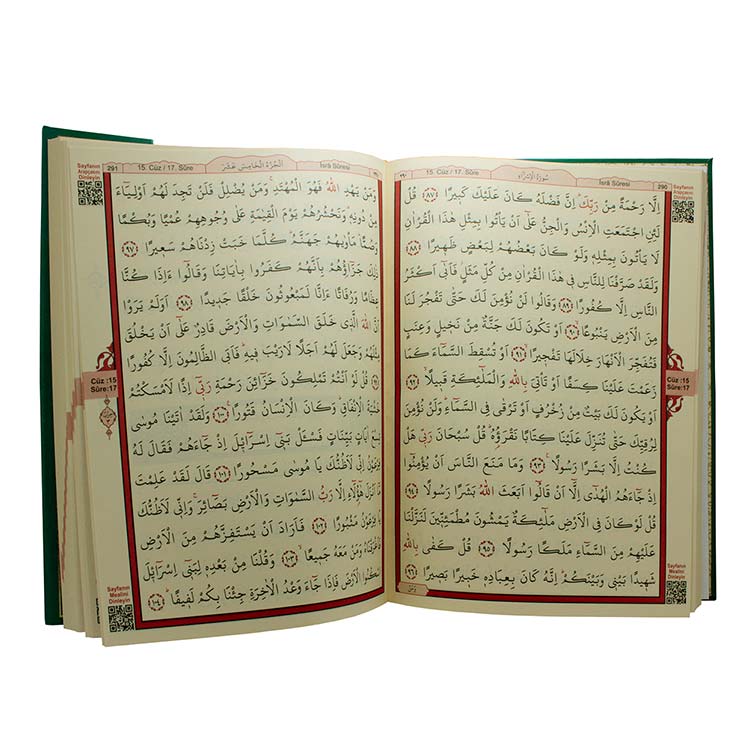 290
15. Cüz / 17. Sûre
سُورَةُ الْاِسْرَاءِ
Isrâ Sûresi
٢٩٠
Sayfanın
Arapçasını
Dinleyin
اِلَّا رَحْمَةً مِنْ رَبِّكَۜ اِنَّ فَضْلَهُ كَانَ عَلَيْكَ كَب۪يرًا ﴿٨٧﴾ قُلْ
لَئِنِ اجْتَمَعَتِ الْاِنْسُ وَالْجِنُّ عَلٰٓى اَنْ يَأْتُوا بِمِثْلِ هٰذَا الْقُرْاٰنِ
لَا يَأْتُونَ بِمِثْلِه۪ وَلَوْ كَانَ بَعْضُهُمْ لِبَعْضٍ ظَه۪يرًا ﴿٨٨﴾
وَلَقَدْ صَرَّفْنَا لِلنَّاسِ ف۪ي هٰذَا الْقُرْاٰنِ مِنْ كُلِّ مَثَلٍۘ فَاَبٰٓى اَكْثَرُ
النَّاسِ اِلَّا كُفُورًا ﴿٨٩﴾ وَقَالُوا لَنْ نُؤْمِنَ لَكَ حَتّٰى تَفْجُرَ لَنَا
مِنَ الْاَرْضِ يَنْبُوعًاۙ ﴿٩٠﴾ اَوْ تَكُونَ لَكَ جَنَّةٌ مِنْ نَخ۪يلٍ وَعِنَبٍ
فَتُفَجِّرَ الْاَنْهَارَ خِلَالَهَا تَفْج۪يرًاۙ ﴿٩١﴾ اَوْ تُسْقِطَ السَّمَٓاءَ كَمَا
زَعَمْتَ عَلَيْنَا كِسَفًا اَوْ تَأْتِيَ بِاللّٰهِ وَالْمَلٰٓئِكَةِ قَب۪يلًاۙ ﴿٩٢﴾
اَوْ يَكُونَ لَكَ بَيْتٌ مِنْ زُخْرُفٍ اَوْ تَرْقٰى فِي السَّمَٓاءِۜ وَلَنْ نُؤْمِنَ
لِرُقِيِّكَ حَتّٰى تُنَزِّلَ عَلَيْنَا كِتَابًا نَقْرَؤُ۬هُۜ قُلْ سُبْحَانَ رَبّ۪ي هَلْ
كُنْتُ اِلَّا بَشَرًا رَسُولًا۟ ﴿٩٣﴾ وَمَا مَنَعَ النَّاسَ اَنْ يُؤْمِنُٓوا
اِذْ جَٓاءَهُمُ الْهُدٰٓى اِلَّٓا اَنْ قَالُٓوا اَبَعَثَ اللّٰهُ بَشَرًا رَسُولًا ﴿٩٤﴾
قُلْ لَوْ كَانَ فِي الْاَرْضِ مَلٰٓئِكَةٌ يَمْشُونَ مُطْمَئِنّ۪ينَ لَنَزَّلْنَا
عَلَيْهِمْ مِنَ السَّمَٓاءِ مَلَكًا رَسُولًا ﴿٩٥﴾ قُلْ كَفٰى بِاللّٰهِ
شَه۪يدًا بَيْن۪ي وَبَيْنَكُمْۜ اِنَّهُ كَانَ بِعِبَادِه۪ خَب۪يرًا بَص۪يرًا ﴿٩٦﴾
وَمَنْ
Cüz :15
Sûre:17
Sayfanın
Mealini
Dinleyin
291
15. Cüz / 17. Sûre
اَلْجُزْءُ الْخَامِسَ عَشَرَ
Isrâ Sûresi
Sayfanın
Arapçasını
Dinleyin
وَمَنْ يَهْدِ اللّٰهُ فَهُوَ الْمُهْتَدِۚ وَمَنْ يُضْلِلْ فَلَنْ تَجِدَ لَهُمْ اَوْلِيَٓاءَ
مِنْ دُونِه۪ۜ وَنَحْشُرُهُمْ يَوْمَ الْقِيٰمَةِ عَلٰى وُجُوهِهِمْ عُمْيًا وَبُكْمًا
وَصُمًّاۜ مَأْوٰيهُمْ جَهَنَّمُۜ كُلَّمَا خَبَتْ زِدْنَاهُمْ سَع۪يرًا ﴿٩٧﴾
ذٰلِكَ جَزَٓاؤُ۬هُمْ بِاَنَّهُمْ كَفَرُوا بِاٰيَاتِنَا وَقَالُٓوا ءَاِذَا كُنَّا
عِظَامًا وَرُفَاتًا ءَاِنَّا لَمَبْعُوثُونَ خَلْقًا جَد۪يدًا ﴿٩٨﴾ اَوَلَمْ يَرَوْا
اَنَّ اللّٰهَ الَّذ۪ي خَلَقَ السَّمٰوَاتِ وَالْاَرْضَ قَادِرٌ عَلٰٓى اَنْ يَخْلُقَ
مِثْلَهُمْ وَجَعَلَ لَهُمْ اَجَلًا لَا رَيْبَ ف۪يهِۜ فَاَبَى الظَّالِمُونَ اِلَّا كُفُورًا
﴿٩٩﴾ قُلْ لَوْ اَنْتُمْ تَمْلِكُونَ خَزَٓائِنَ رَحْمَةِ رَبّ۪ٓي اِذًا لَاَمْسَكْتُمْ
خَشْيَةَ الْاِنْفَاقِۜ وَكَانَ الْاِنْسَانُ قَتُورًا۟ ﴿١٠٠﴾ وَلَقَدْ اٰتَيْنَا مُوسٰى
تِسْعَ اٰيَاتٍ بَيِّنَاتٍ فَسْـَٔلْ بَن۪ٓي اِسْرَٓائ۪لَ اِذْ جَٓاءَهُمْ فَقَالَ لَهُ
فِرْعَوْنُ اِنّ۪ي لَاَظُنُّكَ يَا مُوسٰى مَسْحُورًا ﴿١٠١﴾ قَالَ لَقَدْ عَلِمْتَ
مَٓا اَنْزَلَ هٰٓؤُ۬لَٓاءِ اِلَّا رَبُّ السَّمٰوَاتِ وَالْاَرْضِ بَصَٓائِرَۚ وَاِنّ۪ي لَاَظُنُّكَ
يَا فِرْعَوْنُ مَثْبُورًا ﴿١٠٢﴾ فَاَرَادَ اَنْ يَسْتَفِزَّهُمْ مِنَ الْاَرْضِ
فَاَغْرَقْنَاهُ وَمَنْ مَعَهُ جَم۪يعًاۙ ﴿١٠٣﴾ وَقُلْنَا مِنْ بَعْدِه۪ لِبَن۪ٓي اِسْرَٓائ۪لَ
اسْكُنُوا الْاَرْضَ فَاِذَا جَٓاءَ وَعْدُ الْاٰخِرَةِ جِئْنَا بِكُمْ لَف۪يفًاۜ ﴿١٠٤﴾
Cüz :15
Sûre:17
Sayfanın
Mealini
Dinleyin